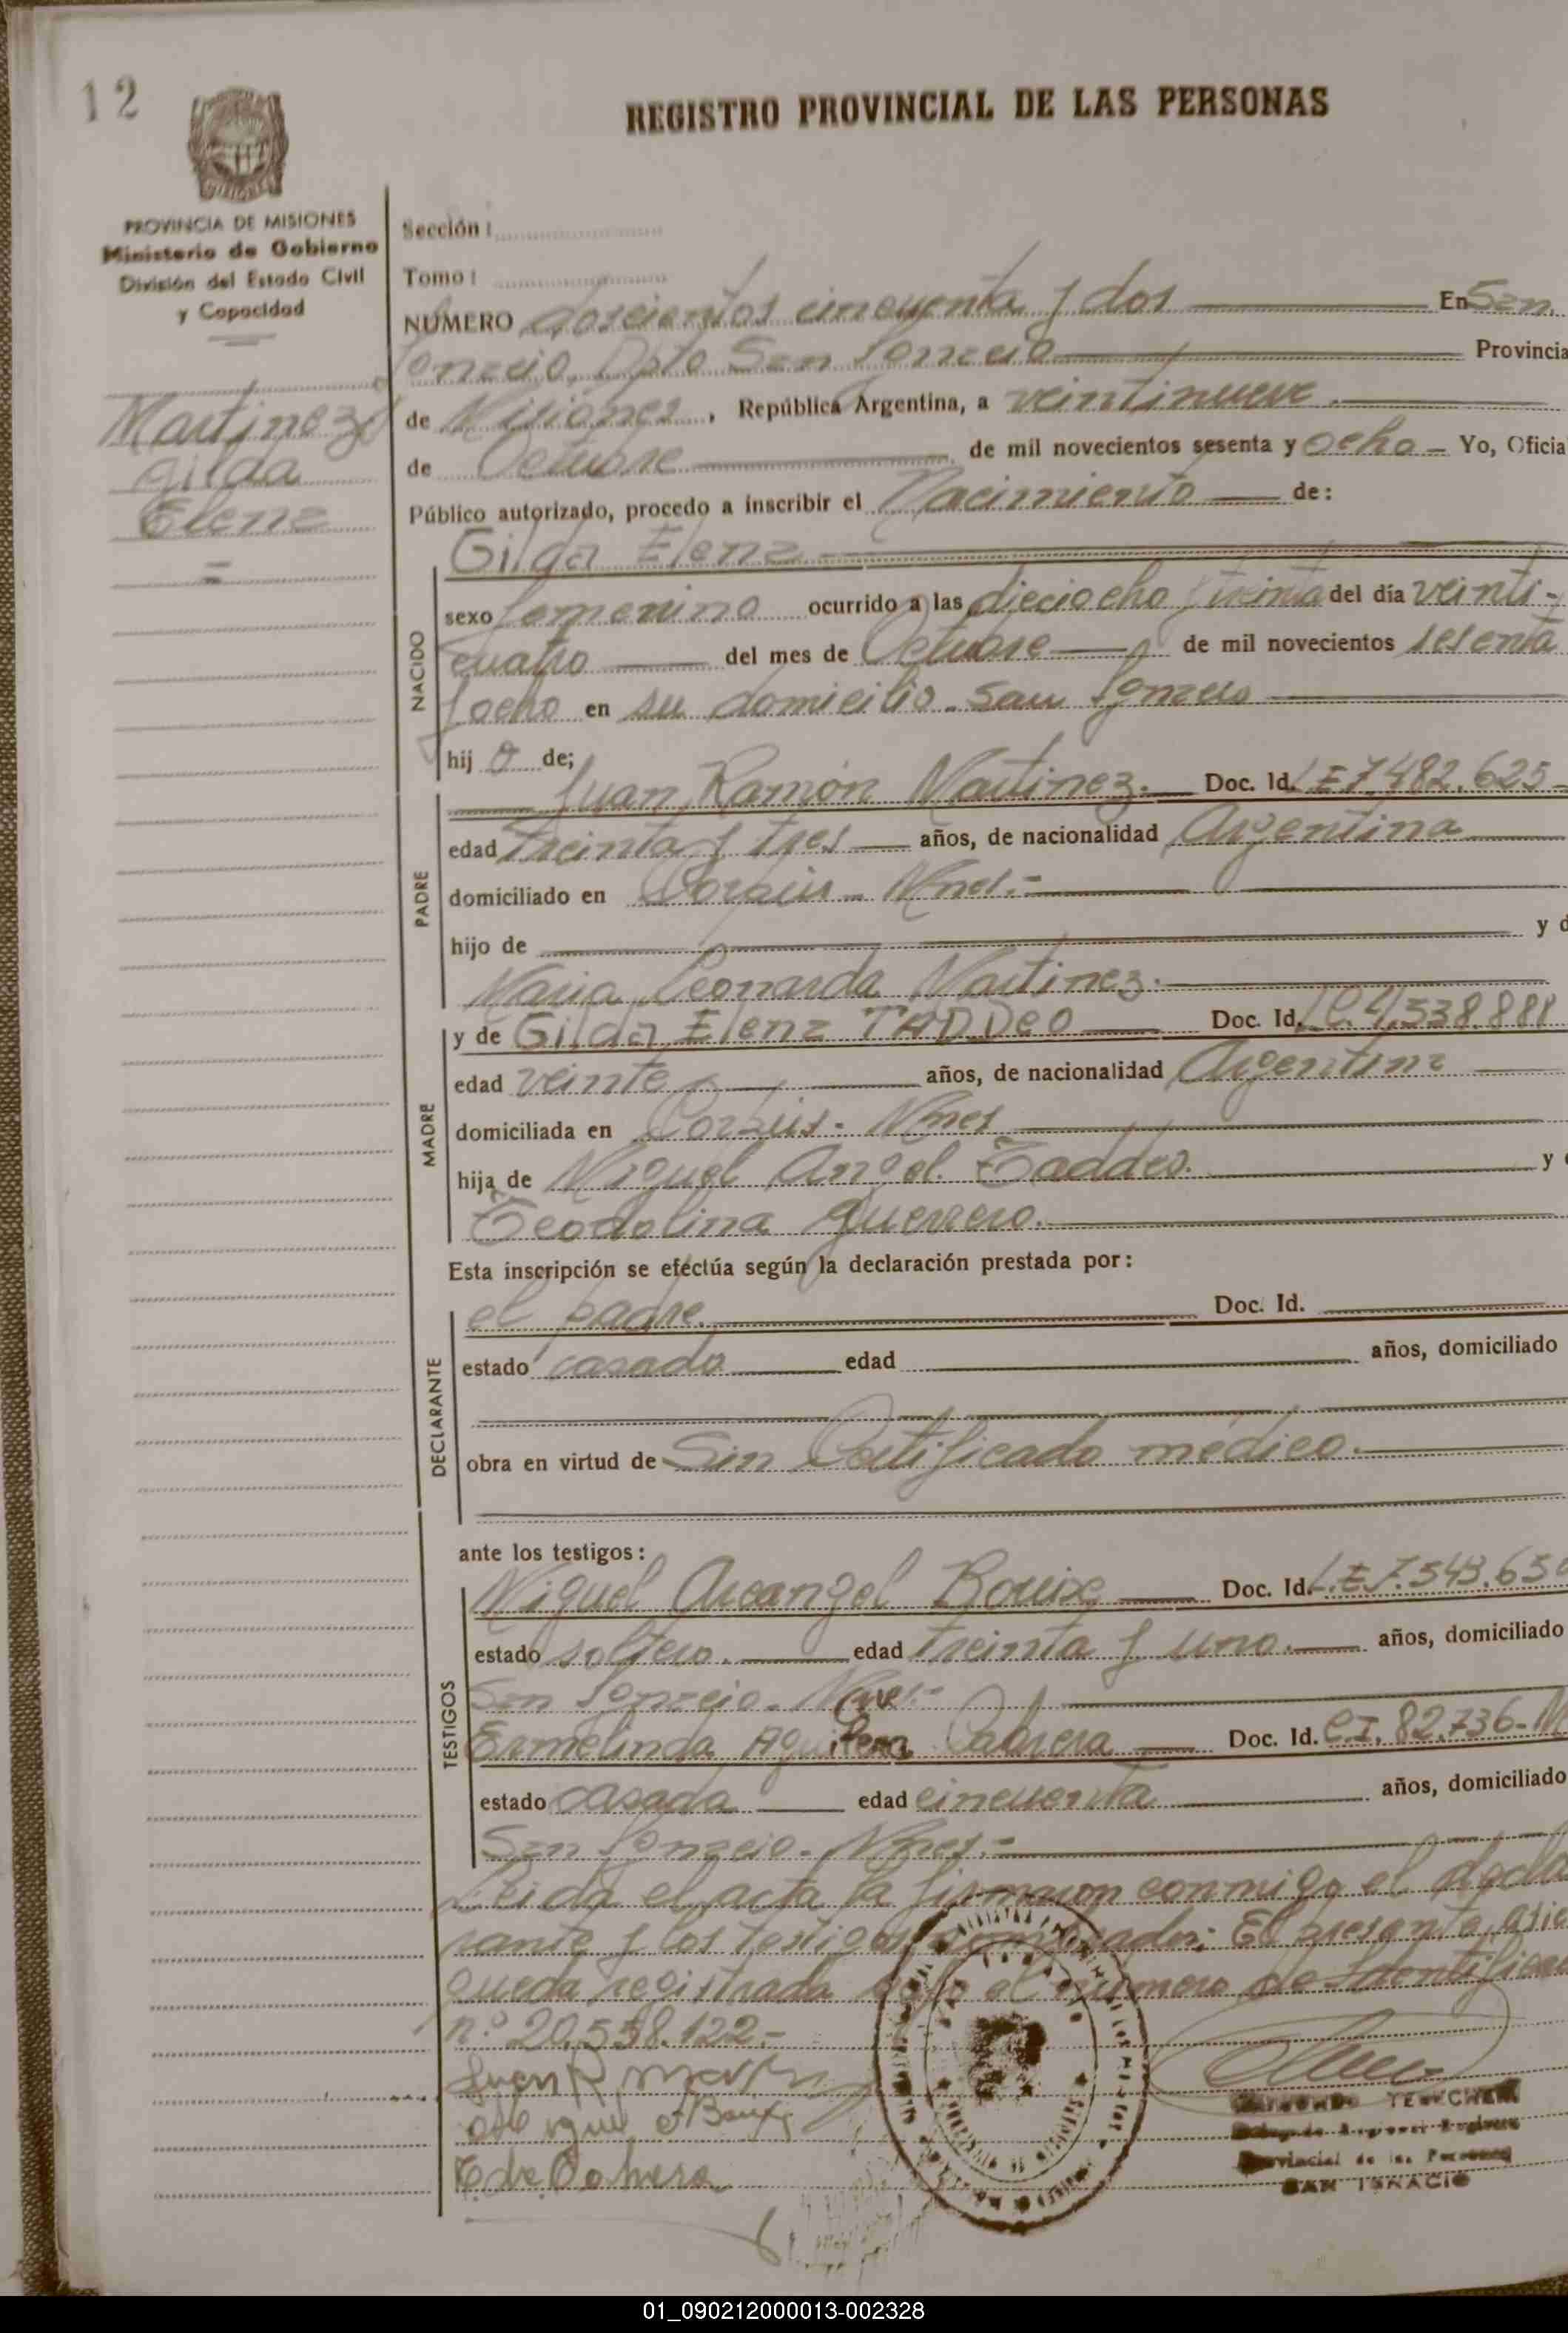 12
REGISTRO PROVINCIAL DE LAS PERSONAS
PROVINCIA DE MISIONES
Ministerio de Gobierno
División del Estado Civil
y Capacidad
Martinez
Gilda
Elena
Sección:
Tomo:
NÚMERO doscientos cincuenta y dos En San
Ignacio, Dpto San Ignacio Provincia
de Misiones, República Argentina, a veintinueve
de Octubre de mil novecientos sesenta y ocho - Yo, Oficia
Público autorizado, procedo a inscribir el Nacimiento de:
Gilda Elena
NACIDO
sexo femenino ocurrido a las dieciocho y treinta del día veinti-
cuatro del mes de Octubre de mil novecientos sesenta
y ocho en su domicilio - San Ignacio
hij a de;
PADRE
Juan Ramón Martinez. Doc. Id. LE 7.482.625
edad treinta y tres años, de nacionalidad Argentina
domiciliado en Corpus - Mnes.-
hijo de y d
Maria Leonarda Martinez.
MADRE
y de Gilda Elena TADDEO Doc. Id. 538.888
edad veinte años, de nacionalidad Argentina
domiciliada en Corpus - Mnes
hija de Miguel Angel Taddeo. y
Teodolina Guerrero.
Esta inscripción se efectúa según la declaración prestada por:
DECLARANTE
el padre. Doc. Id.
estado casado edad años, domiciliado
obra en virtud de Sin Certificado médico.
ante los testigos:
TESTIGOS
Miguel Arcangel Doc. Id. L.E 7.543.65
estado soltero. edad treinta y uno. años, domiciliado
San Ignacio - Mnes.-
Ermelinda Aguilera Cabrera Doc. Id. C.I. 82.736-M
estado casada edad cincuenta años, domiciliado
San Ignacio - Mnes.-
Leida el acta la firmaron conmigo el decla
rante y los testigos El presente asie
queda registrada bajo el número de Identificac
n.º 20.558.122.-
Juan R. Martinez
E. de Cabrera
Provincial de las Personas
SAN IGNACIO
01_090212000013-002328